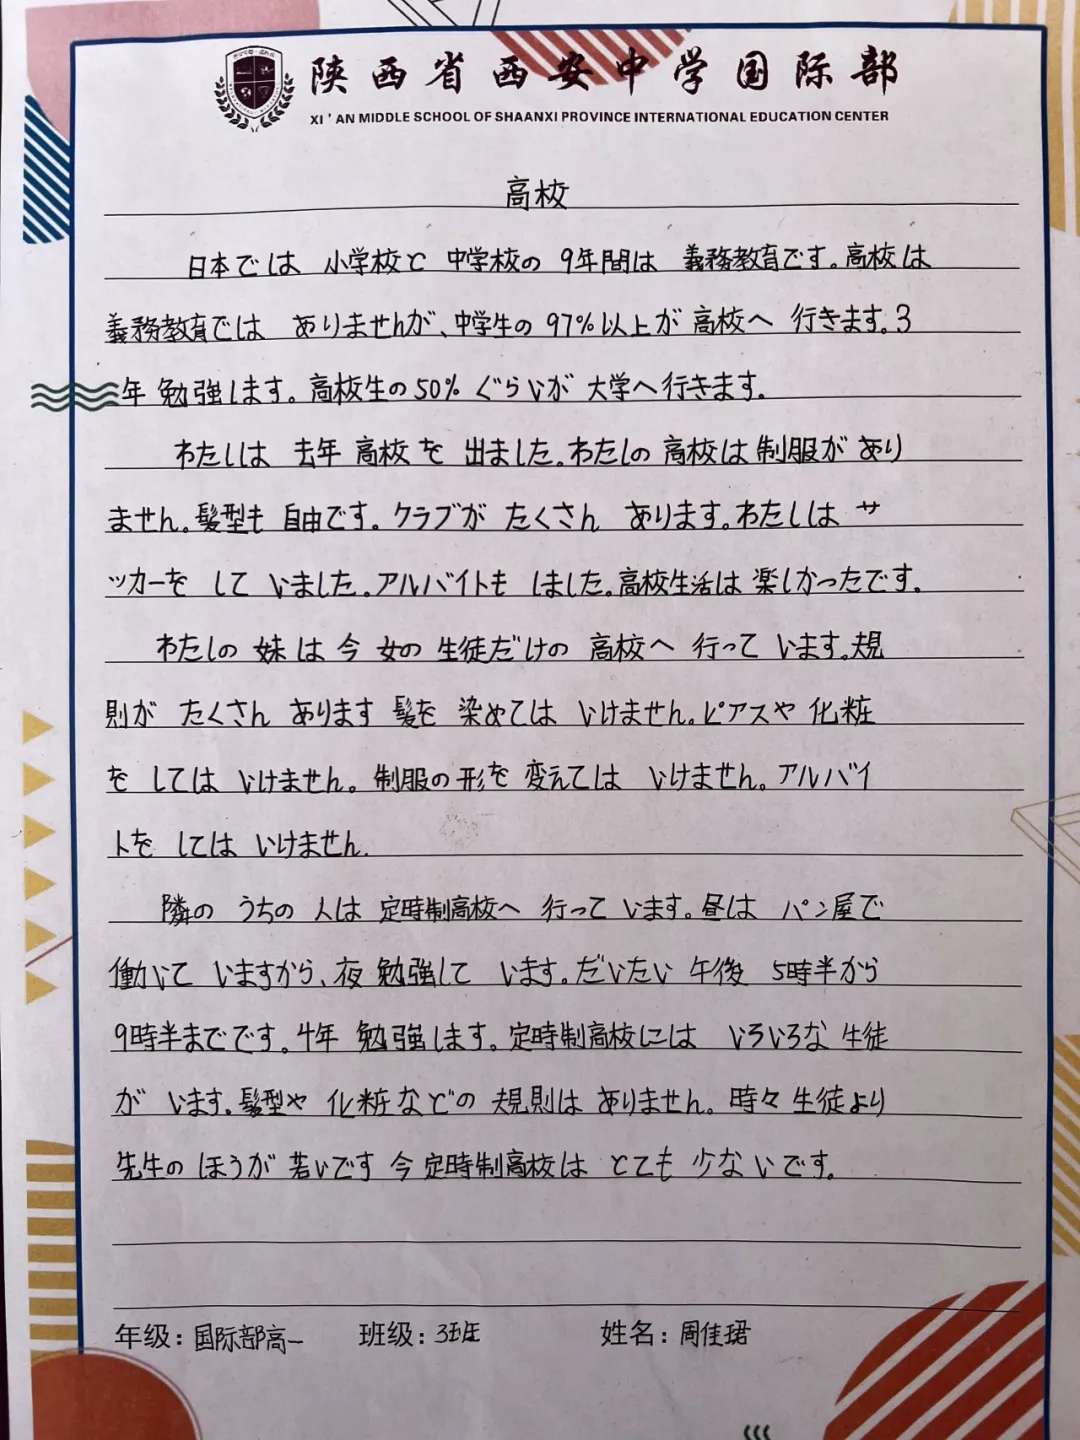 陕西省西安中学国际部
XI'AN MIDDLE SCHOOL OF SHAANXI PROVINCE INTERNATIONAL EDUCATION CENTER
高校
日本では 小学校と 中学校の 9年間は 義務教育です。高校は
義務教育では ありませんが、中学生の 97%以上が 高校へ 行きます。3
年 勉強します。高校生の50% ぐらいが 大学へ行きます。
わたしは 去年 高校を 出ました。わたしの 高校は制服が あり
ません。髪型も 自由です。クラブが たくさん あります。わたしは サ
ッカーを して いました。アルバイトも しました。高校生活は 楽しかったです。
わたしの 妹は 今 女の 生徒だけの 高校へ 行って います。規
則が たくさん あります 髪を 染めては いけません。ピアスや 化粧
を しては いけません。制服の 形を 変えては いけません。アルバイ
トを しては いけません.
隣の うちの 人は 定時制高校へ 行って います。昼は パン屋で
働いて いますから、夜 勉強して います。だいたい 午後 5時半から
9時半までです。4年 勉強します。定時制高校には いろいろな 生徒
が います。髪型や 化粧などの 規則は ありません。時々 生徒より
先生の ほうが 若いです 今 定時制高校は とても 少ないです。
年级：国际部高一 班级：3班 姓名：周佳珺